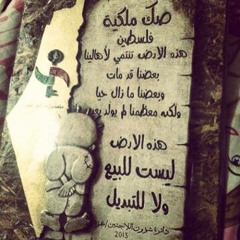 صك ملكية
فلسطين
هذه الأرض تنتمي لأهالينا
بعضنا قد مات
وبعضنا ما زال حيا
ولكنه معظمنا لم يولد بعد
هذه الأرض
ليست للبيع
ولا للتبديل
دائرة شؤون اللاجئين
2013